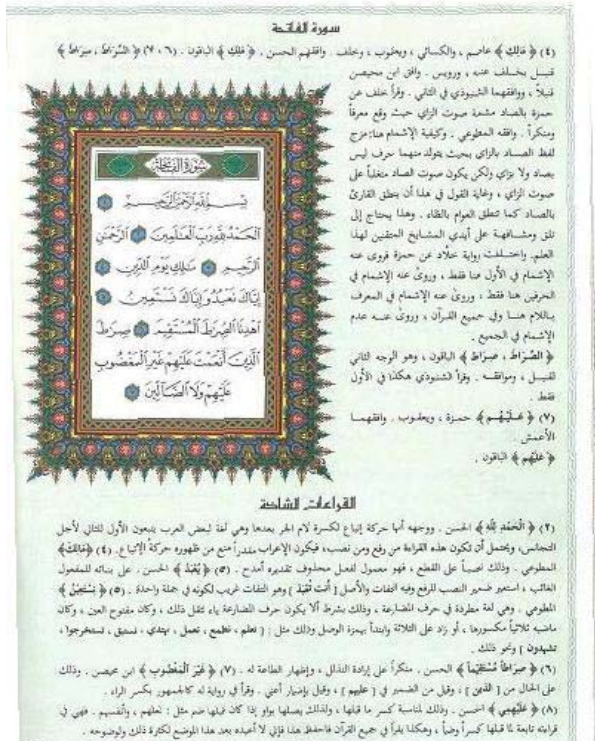 سورة الفاتحة
(٤) ﴿ مَالِكِ ﴾ عاصم ، والكسائي ، ويعقوب ، وخلف . وافقهم الحسن . ﴿ مَلِكِ ﴾ الباقون . (٦ ، ٧) ﴿ السِّرَاطَ ، سِرَاطَ ﴾
قنبل بخلف عنه ، ورويس . وافق ابن محيصن
قنبلاً ، ووافقهما الشنبوذي في الثاني . وقرأ خلف عن
حمزة بالصاد مشمة صوت الزاي حيث وقع معرفاً
ومنكراً . وافقه المطوعي . وكيفية الإشمام هنا: مزج
لفظ الصــاد بالزاي بحيث يتولد منهما حرف ليس
بصاد ولا بزاي ولكن يكون صوت الصاد متغلباً على
صوت الزاي ، وغاية القول في هذا أن ينطق القارئ
بالصــاد كما تنطق العوام بالظاء . وهذا يحتاج إلى
تلق ومشــافهــة على أيدي المشايخ المتقنين لهذا
العلم. واختــلفت رواية خلّاد عن حمزة فروى عنه
الإشمام في الأول هنا فقط ، وروىٰ عنه الإشمام في
الحرفين هنا فقط ، وروىٰ عنه الإشمام في المعرف
بـاللام هنــا وفي جميع القرآن ، وروىٰ عنــه عدم
الإشمام في الجميع .
﴿ الصِّرَاطَ ، صِرَاطَ ﴾ الباقون ، وهو الوجه الثاني
لقنبــل ، وموافقــه . وقرأ الشنبوذي هكذا في الأول
فقط .
(٧) ﴿ عَلَيْهُم ﴾ حمزة ، ويعقوب . وافقهمــا
الأعمش .
﴿ عَلَيْهِم ﴾ الباقون .
سُورَةُ الفَاتِحَةِ
بِسْمِ ٱللَّهِ ٱلرَّحْمَٰنِ ٱلرَّحِيمِ ١
ٱلْحَمْدُ لِلَّهِ رَبِّ ٱلْعَٰلَمِينَ ٢ ٱلرَّحْمَٰنِ
ٱلرَّحِيمِ ٣ مَٰلِكِ يَوْمِ ٱلدِّينِ ٤
إِيَّاكَ نَعْبُدُ وَإِيَّاكَ نَسْتَعِينُ ٥
ٱهْدِنَا ٱلصِّرَٰطَ ٱلْمُسْتَقِيمَ ٦ صِرَٰطَ
ٱلَّذِينَ أَنْعَمْتَ عَلَيْهِمْ غَيْرِ ٱلْمَغْضُوبِ
عَلَيْهِمْ وَلَا ٱلضَّآلِّينَ ٧
القراءات الشاذة
(٢) ﴿ الْحَمْدِ لِلَّهِ ﴾ الحسن . ووجهه أنها حركة إتباع لكسرة لام الجر بعدها وهي لغة لبعض العرب يتبعون الأول للثاني لأجل
التجانس، ويحتمل أن تكون هذه القراءة من رفع ومن نصب، فيكون الإعراب مقدراً منع من ظهوره حركة الإتباع. (٤) ﴿مَالِكَ﴾
المطوعي . وذلك نصباً على القطع ، فهو معمول لفعل محذوف تقديره أمدح . (٥) ﴿ يُعْبَدُ ﴾ الحسن . على بنائه للمفعول
الغائب ، استعير ضمير النصب للرفع وفيه التفات والأصل [ أنت تُعبَد ] وهو التفات غريب لكونه في جملة واحدة . (٥) ﴿ نِسْتَعِينُ ﴾
المطوعي . وهي لغة مطردة في حرف المضارعة ، وذلك بشرط ألا يكون حرف المضارعة ياء لثقل ذلك ، وكان مفتوح العين ، وكان
ماضيه ثلاثياً مكسورها ، أو زاد على الثلاثة وابتدأ بهمزة الوصل وذلك مثل : [ نعلم ، نطمع ، نعمل ، نهتدي ، نستبق ، تستخرجوا ،
تشهدون ] ونحو ذلك .
(٦) ﴿ صِرَاطاً مُسْتَقِيماً ﴾ الحسن . منكراً على إرادة التذلل ، وإظهار الطاعة له . (٧) ﴿ غَيْرَ الْمَغْضُوبِ ﴾ ابن محيصن . وذلك
على الحال من [ الذين ] ، وقيل من الضمير في [ عليهم ] ، وقيل بإضمار أعني . وقرأ في رواية له كالجمهور بكسر الراء .
(٨) ﴿ عَلَيْهِمِي ﴾ الحسن . وذلك لمناسبة كسر ما قبلها ، ولذلك يصلها بواو إذا كان قبلها ضم مثل : لعلهم ، وأنفسهم . فهي في
قراءته تابعة لما قبلها كسراً وضماً ، وهكذا يقرأ في جميع القرآن فاحفظ هذا فإني لا أعيده بعد هذا الموضع لكثرة ذلك ولوضوحه .